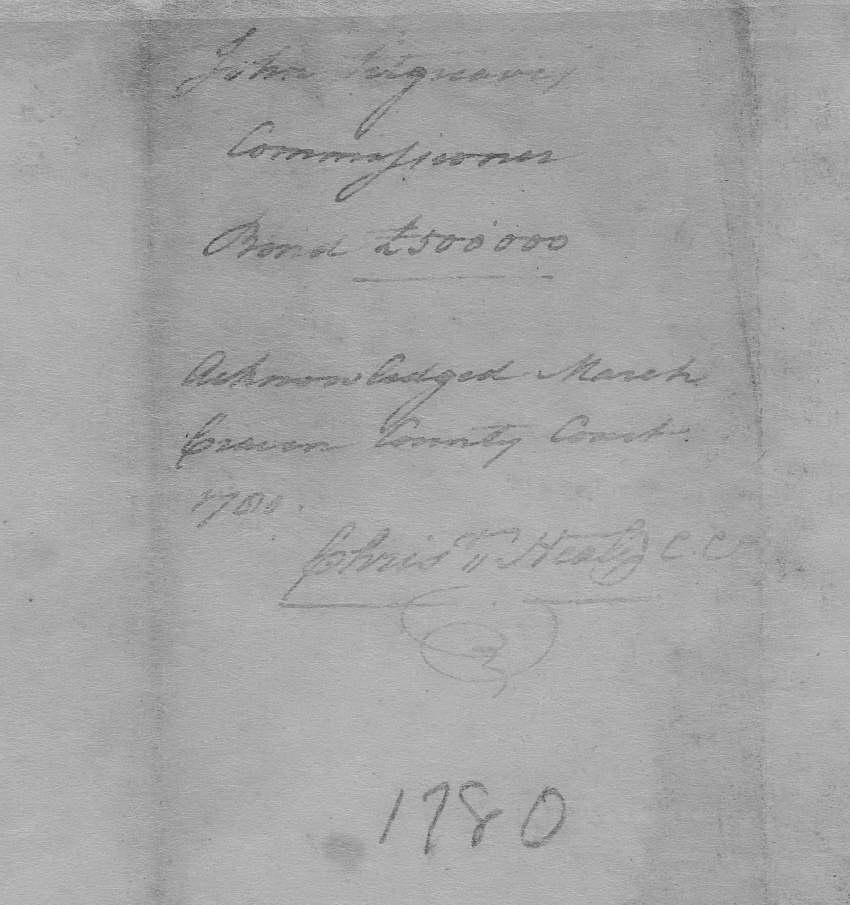 John
Commissioner
Bond £500000
Acknowledged March
Craven County Court
1780.
Chris Tr Nealy C. C.
1780